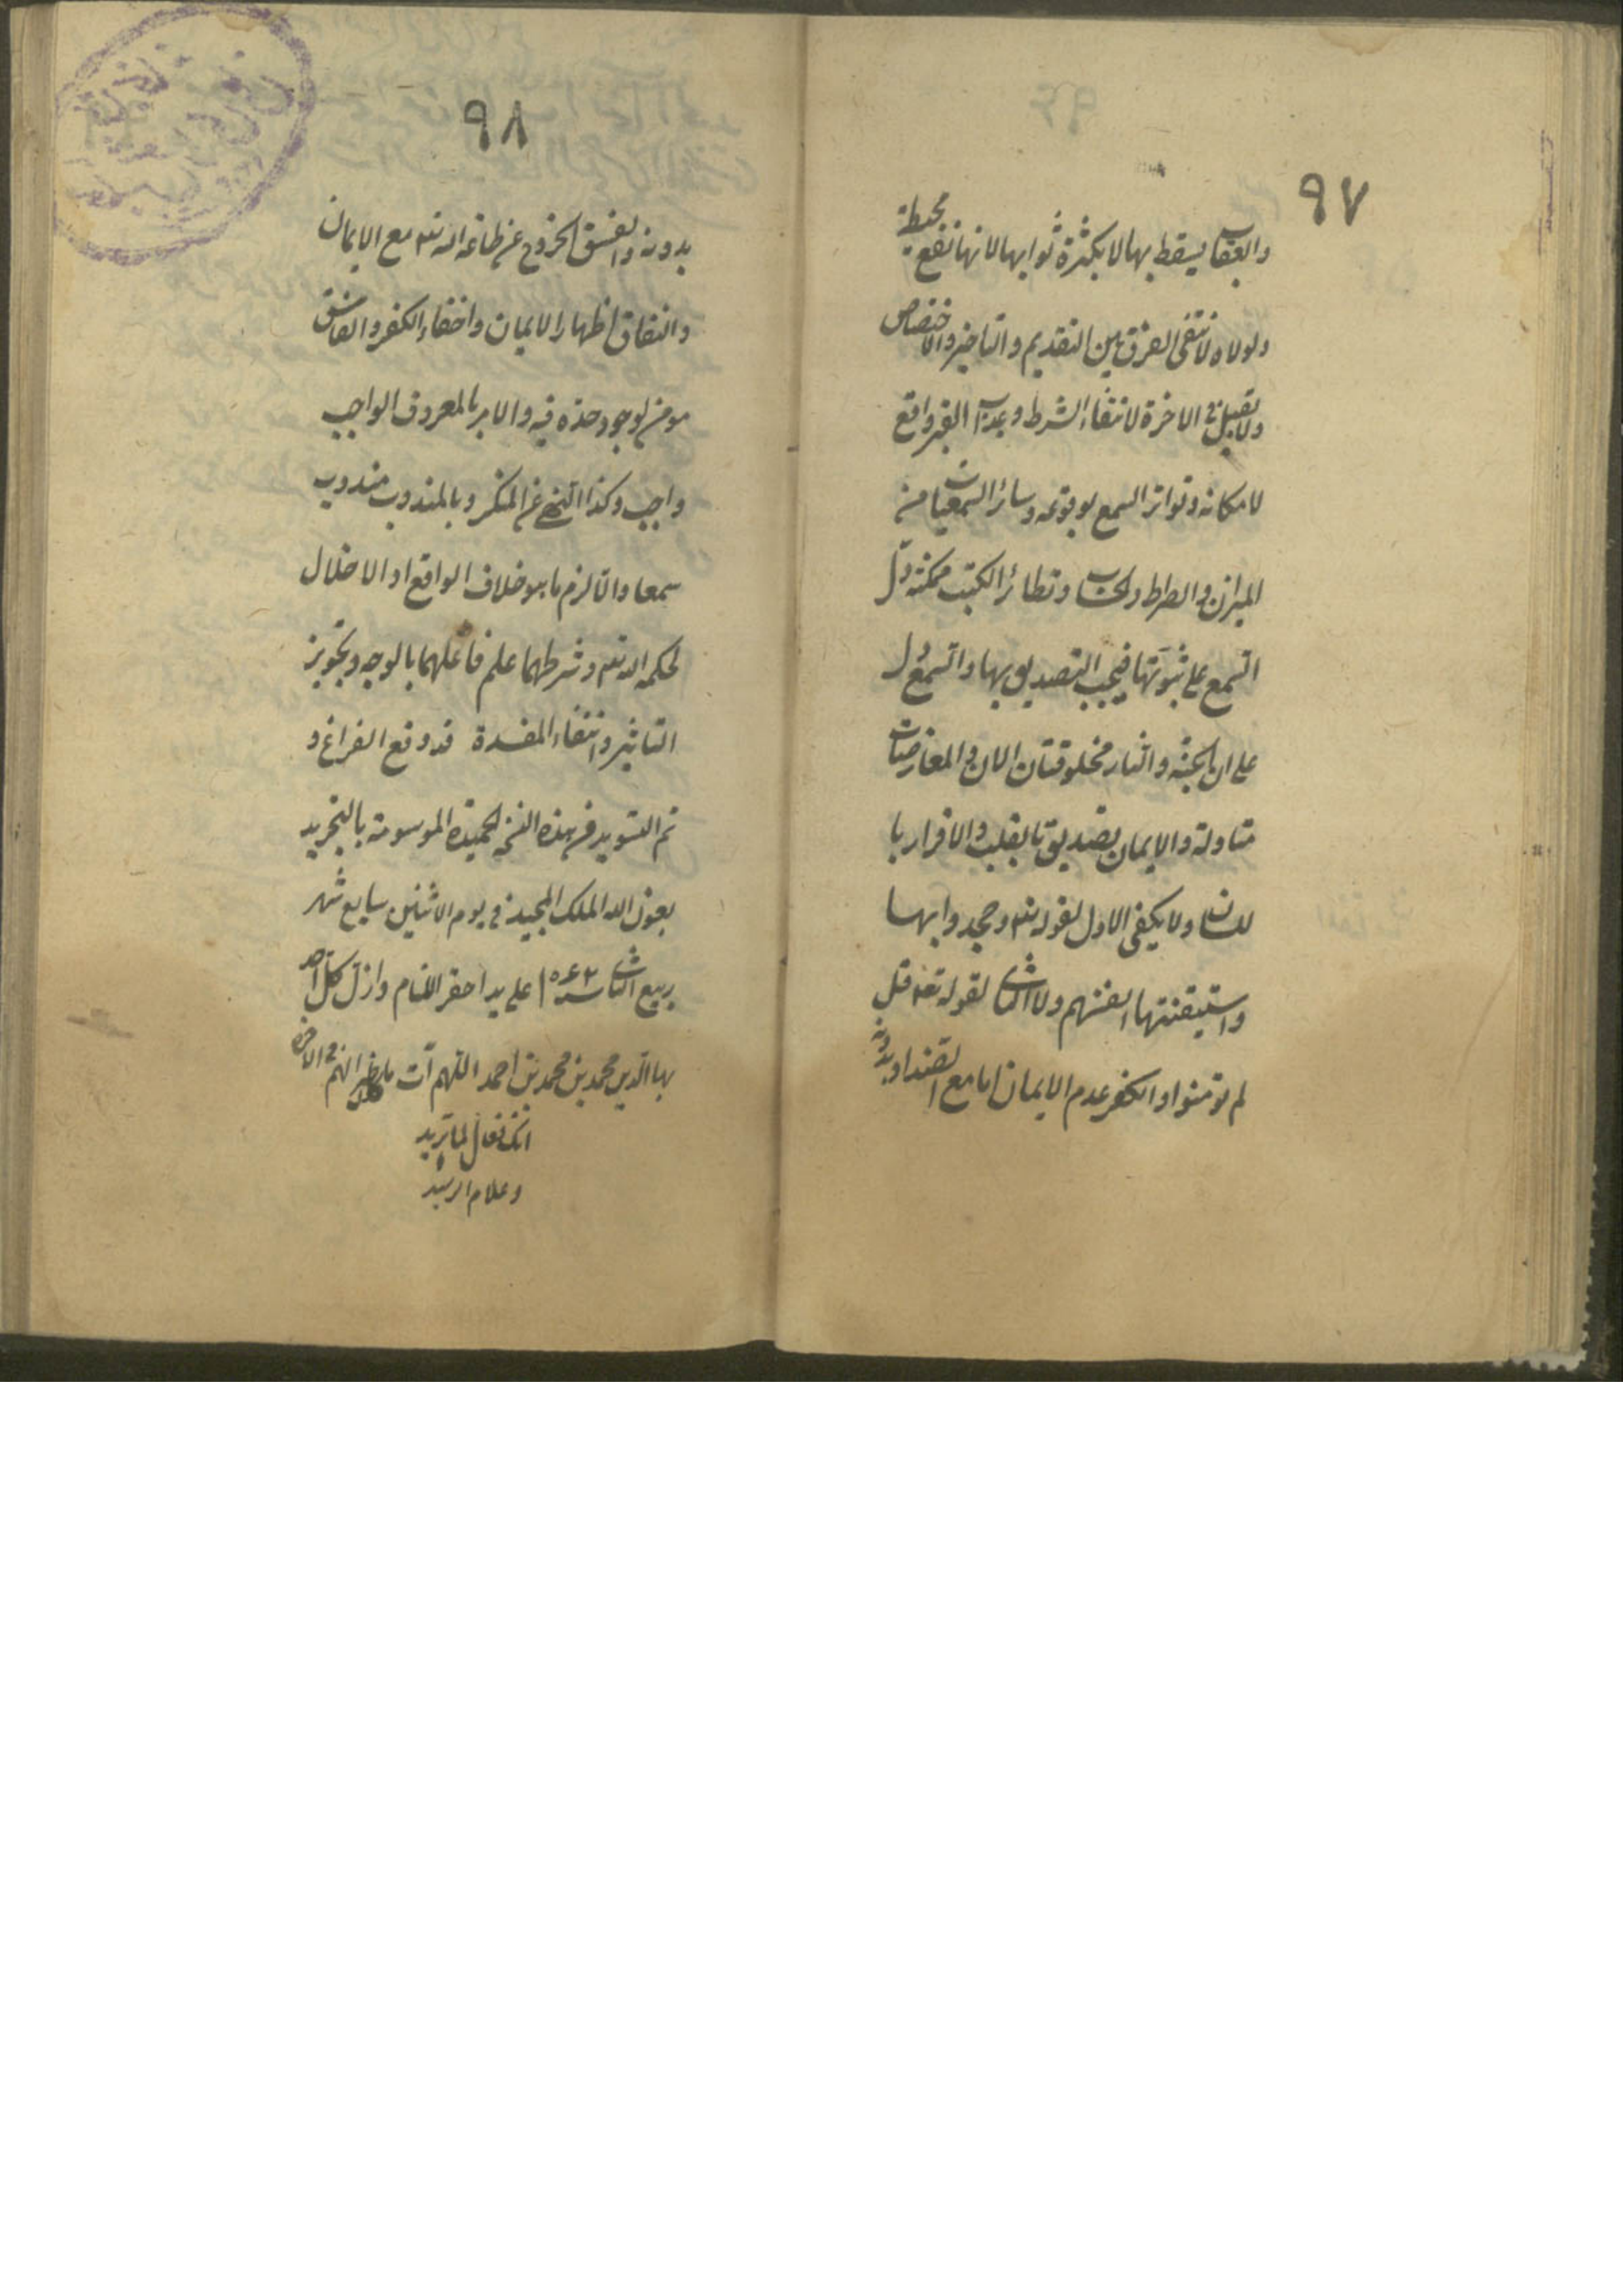 ٩٧
والعقاب يسقط بها لا بكثرة ثوابها لانها تقع محبطة
ولولاه لانتفى الفرق بين التقديم والتاخير والاختصاص
ولا تقبل في الاخرة لانتفاء الشرط وعذاب القبر واقع
لامكانه وتواتر السمع بوقوعه وسائر السمعيات من
الميزان والصراط والحساب وتطائر الكتب ممكنة دلّ
السمع على ثبوتها فيجب التصديق بها والسمع دل
على ان الجنة والنار مخلوقتان الان والمعارضات
متاولة والايمان تصديق بالقلب والاقرار با
للسان ولا يكفي الاول لقوله تعه وجحدوا بها
واستيقنتها انفسهم ولا الثاني لقوله تعه قل
لم تومنوا والكفر عدم الايمان اما مع الضد او بدونه
٩٨
بدونه والفسق الخروج عن طاعة الله تعه مع الايمان
والنفاق اظهار الايمان واخفاء الكفر والفاسق
مومن لوجود حده فيه والامر بالمعروف الواجب
واجب وكذا النهي عن المنكر وبالمندوب مندوب
سمعا والا لزم ما هو خلاف الواقع او الاخلال
لحكمه الله تعه وشرطهما علم فاعلهما بالوجه وتجويز
التاثير وانتفاء المفسدة قد وقع الفراغ و
تم التسويد من هذه النسخة الحميدة الموسومة بالتجريد
بعون الله الملك المجيد في يوم الاثنين سابع شهر
ربيع الثاني سنه ١٠٤٣ على يد احقر الانام وارذل كل احد
بهاالدين محمد بن محمد بن احمد اللهم آت في الاخرة
انك فعال لما تريد
وعلام الرشيد